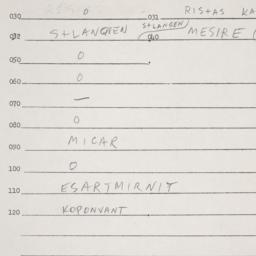 030 0 031 RISTAS KA
032 STLANGEEN STLANGEN 040 MESIRE
050 0
060 0
070 —
080 0
090 MICAR
100 0
110 ESARTMIRNIT
120 KOPONVANT